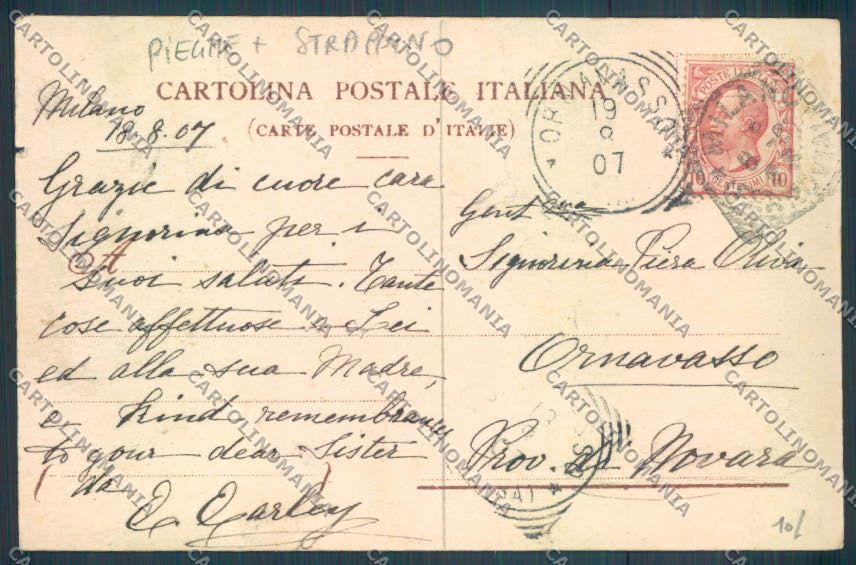 PIEGHE + STRAPPINO
CARTOLINA POSTALE ITALIANA
(CARTE POSTALE D'ITALIE)
Milano
18.8.07
Grazie di cuore cara
Signorina per i
Suoi saluti. Tante
cose affettuose a Lei
ed alla sua Madre,
e kind remembrances
to your dear Sister
da
Gent ma
Signorina Piera Oliva
Ornavasso
Prov. di Novara
ORNAVASSO
19
8
07
POSTE ITALIANE
CENTESIMI
10
10/
CARTOLINOMANIA